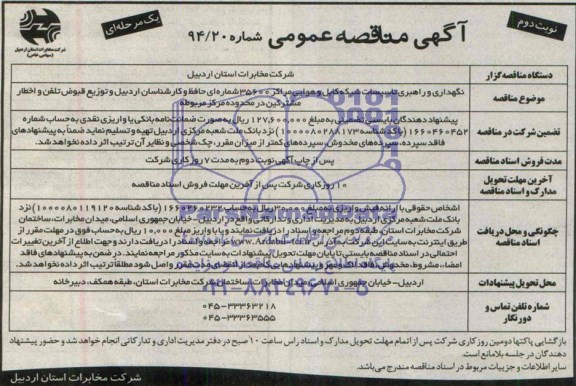 نوبت دوم
آگهی مناقصه عمومی شماره ۹۴/۲۰
یک مرحله‌ای
شرکت مخابرات استان اردبیل
(سهامی خاص)
دستگاه مناقصه گزار
شرکت مخابرات استان اردبیل
موضوع مناقصه
نگهداری و راهبری تاسیسات شبکه کابل و هوایی مراکز ۳۵۶۰۰ شماره‌ای حافظ و کارشناسان اردبیل و توزیع قبوض تلفن و اخطار
مشترکین در محدوده مرکز مربوطه
تضمین شرکت در مناقصه
پیشنهاد دهندگان بایستی تضمینی به مبلغ ۱۲۷,۶۰۰,۰۰۰ ریال به صورت ضمانت نامه بانکی یا واریزی نقدی به حساب شماره
۱۶۶۰۴۶۰۴۵۲ (باکد شناسه ۱۰۰۰۰۸۰۲۸۸۱۷۳) نزد بانک ملت شعبه مرکزی اردبیل تهیه و تسلیم نماید ضمناً به پیشنهادهای
فاقد سپرده، سپرده‌های مخدوش، سپرده‌های کمتر از میزان مقرر، چک شخصی و نظایر آن ترتیب اثر داده نخواهد شد.
مدت فروش اسناد مناقصه
پس از چاپ آگهی نوبت دوم به مدت ۷ روز کاری شرکت
آخرین مهلت تحویل
مدارک و اسناد مناقصه
۱۰ روز کاری شرکت پس از آخرین مهلت فروش اسناد مناقصه
چگونگی و محل دریافت
اسناد مناقصه
اشخاص حقوقی با ارائه فیش واریزی به مبلغ ۳۰۰,۰۰۰ ریال به حساب ۱۶۶۰۴۶۰۲۳۲ (باکد شناسه ۱۰۰۰۰۸۰۱۱۹۱۲۰) نزد
بانک ملت شعبه مرکزی اردبیل به مدیریت اداری و تدارکاتی واقع در اردبیل - خیابان جمهوری اسلامی، میدان مخابرات، ساختمان
شرکت مخابرات استان، طبقه دوم مراجعه و اسناد را دریافت نمایند و یا با واریز مبلغ ۱۰,۰۰۰ ریال به حساب فوق در مهلت مقرر از
طریق اینترنت به سایت این شرکت به آدرس www.Ardabil-tc.ir مراجعه و اسناد را دریافت دارند و جهت اطلاع از آخرین تغییرات
احتمالی در اسناد مناقصه بایستی تا پایان مهلت تحویل پیشنهادات به سایت مذکور مراجعه نمایند. در ضمن به پیشنهادهای فاقد
امضاء، مشروط، مخدوش و پیشنهاداتی که بعد از انقضای مدت مقرر واصل شود مطلقاً ترتیب اثر داده نخواهد شد.
محل تحویل پیشنهادات
اردبیل - خیابان جمهوری اسلامی، میدان مخابرات، ساختمان شرکت مخابرات استان، طبقه همکف، دبیرخانه
شماره تلفن تماس و
دورنگار
۰۴۵-۳۳۳۶۳۲۱۸
۰۴۵-۳۳۳۶۳۵۵۵
۰۲۱-۸۸۳۴۹۶۷۰-۵
بازگشایی پاکتها دومین روز کاری شرکت پس از اتمام مهلت تحویل مدارک و اسناد راس ساعت ۱۰ صبح در دفتر مدیریت اداری و تدارکاتی انجام خواهد شد و حضور پیشنهاد
دهندگان در جلسه بلامانع است.
سایر اطلاعات و جزییات مربوط در اسناد مناقصه مندرج می‌باشد.
شرکت مخابرات استان اردبیل